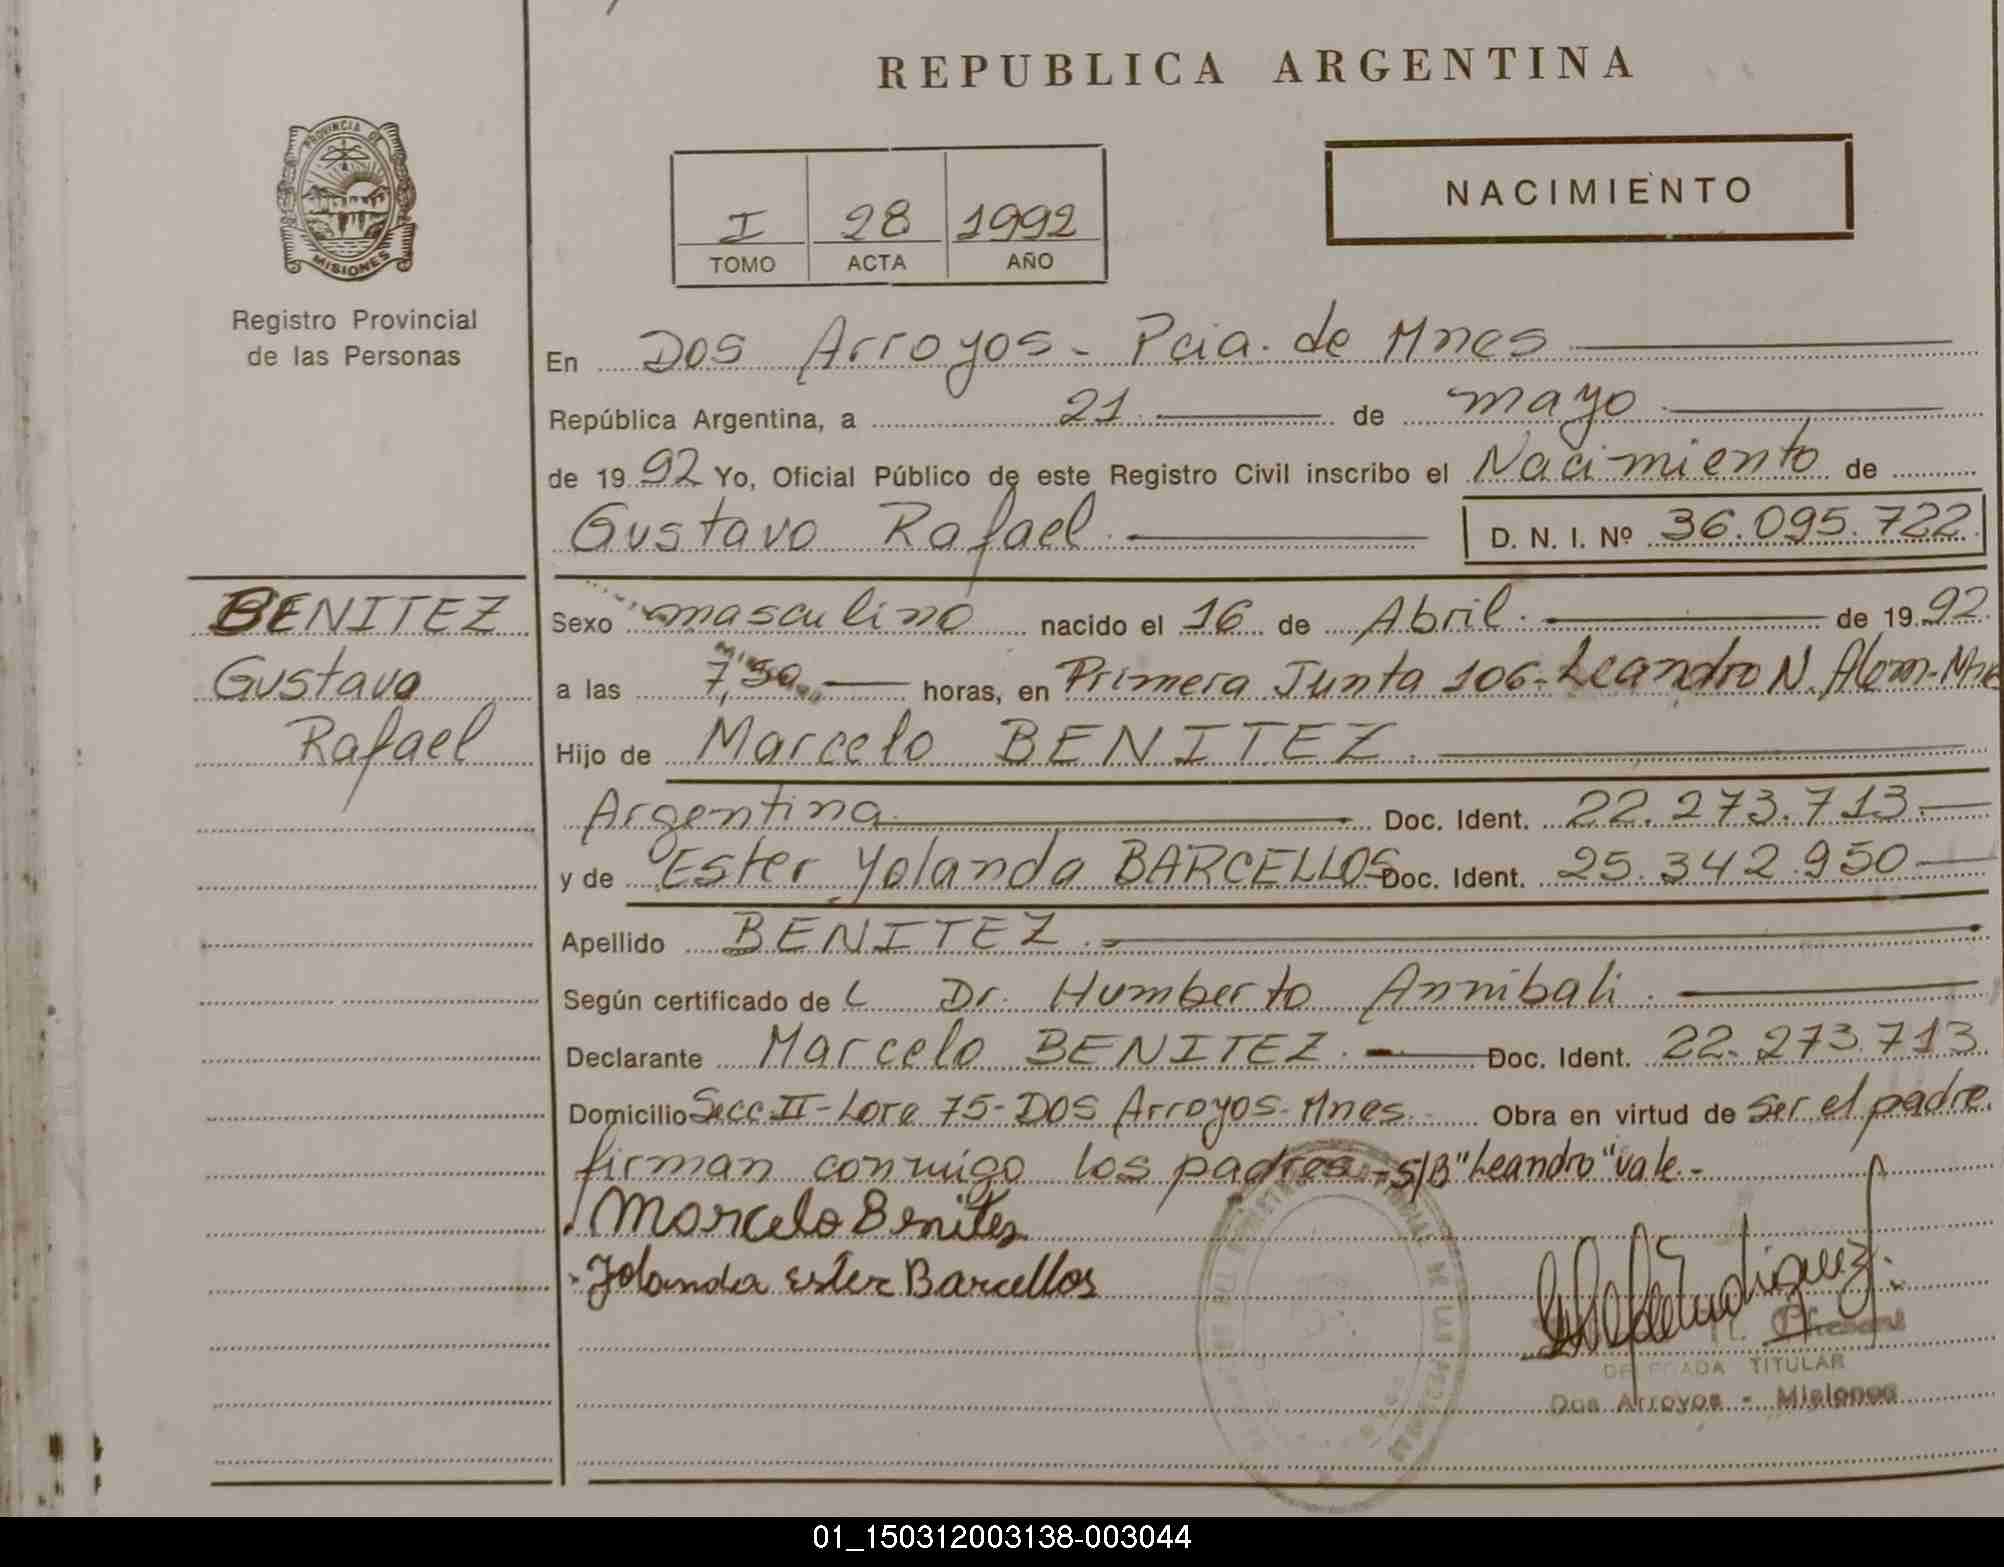 REPUBLICA ARGENTINA
PROVINCIA DE
MISIONES
Registro Provincial
de las Personas
I 28 1992
TOMO ACTA AÑO
NACIMIENTO
En Dos Arroyos - Pcia. de Mnes
República Argentina, a 21 de mayo
de 1992 Yo, Oficial Público de este Registro Civil inscribo el Nacimiento de
Gustavo Rafael. D. N. I. Nº 36.095.722
BENITEZ
Gustavo
Rafael
Sexo masculino nacido el 16 de Abril. de 1992
a las 7,50 horas, en Primera Junta 106-Leandro N. Alem-Mnes
Hijo de Marcelo BENITEZ.
Argentina Doc. Ident. 22.273.713.
y de Ester Yolanda BARCELLOS Doc. Ident. 25.342.950
Apellido BENITEZ.
Según certificado de L Dr. Humberto Annibali.
Declarante Marcelo BENITEZ. Doc. Ident. 22.273.713
Domicilio Secc II - Lote 75 - Dos Arroyos - Mnes. Obra en virtud de ser el padre.
firman conmigo los padres - S/B "Leandro" vale.-
Marcelo Benites
Yolanda Ester Barcellos
DELEGADA TITULAR
Dos Arroyos - Misiones
01_150312003138-003044